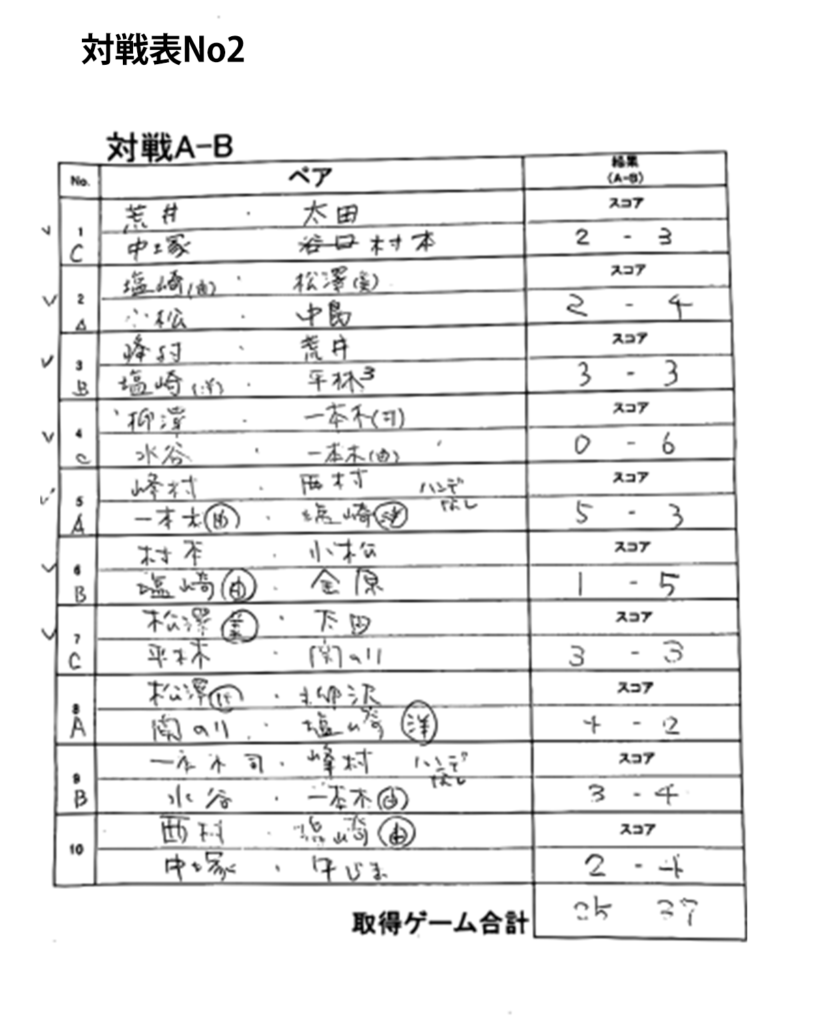 対戦表No2
対戦A-B
No. ペア 結果
(A-B)
荒井 ・ 太田 スコア
1
C 中塚 谷口 村本 2 - 3
塩崎(由) ・ 松澤 スコア
2
A 小松 中島 2 - 4
峰村 荒井 スコア
3
B 塩崎(洋) ・ 平林3 3 - 3
柳澤 一本木(司) スコア
4
C 水谷 ・ 一本木(由) 0 - 6
峰村 ・ 西村 ハンデなし スコア
5
A 一本木(由) ・ 塩崎(洋) 5 - 3
村本 ・ 小松 スコア
6
B 塩崎(由) ・ 金原 1 - 5
松澤 ・ 太田 スコア
7
C 平林 ・ 関のり 3 - 3
松澤 ・ 柳沢 スコア
8
A 関のり ・ 塩崎(洋) 4 - 2
一本木司 ・ 峰村 ハンデなし スコア
9
B 水谷 ・ 一本木(由) 3 - 4
西村 ・ 塩崎(由) スコア
10
中塚 ・ 中じま 2 - 4
取得ゲーム合計 25 37